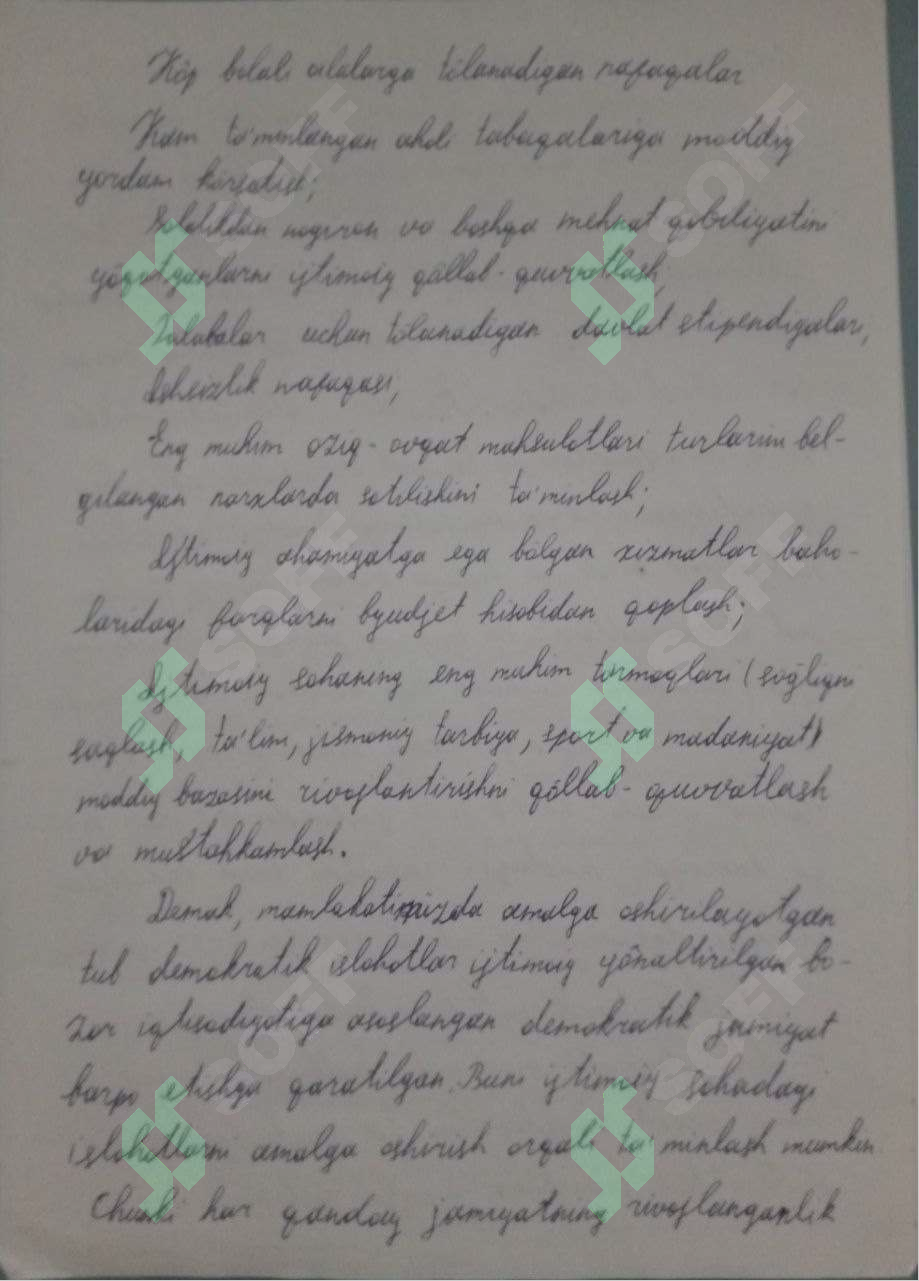 Kõp bolali oilalarga tõlanadigan nafaqalar
Kam ta'minlangan aholi tabaqalariga moddiy
yordam kõrsatish;
Bolalikdan nogiron va boshqa mehnat qobiliyatini
yõqotganlarni ijtimoiy qõllab-quvvatlash,
Talabalar uchun tõlanadigan davlat stipendiyalari,
Ishsizlik nafaqasi,
Eng muhim oziq-ovqat mahsulotlari turlarini bel-
gilangan narxlarda sotilishini ta'minlash;
Ijtimoiy ahamiyatga ega bõlgan xizmatlar baho-
laridagi farqlarni byudjet hisobidan qoplash;
Ijtimoiy sohaning eng muhim tarmoqlari (sogʻliqni
saqlash, ta'lim, jismoniy tarbiya, sport va madaniyat)
moddiy bazasini rivojlantirishni qõllab-quvvatlash
va mustahkamlash.
Demak, mamlakatimizda amalga oshirilayotgan
tub demokratik islohotlar ijtimoiy yõnaltirilgan bo-
zor iqtisodiyotiga asoslangan demokratik jamiyat
barpo etishga qaratilgan. Buni ijtimoiy sohadagi
islohotlarni amalga oshirish orqali ta'minlash mumkin.
Chunki har qanday jamiyatning rivojlanganlik
SOFF
SOFF
SOFF
SOFF
SOFF
SOFF